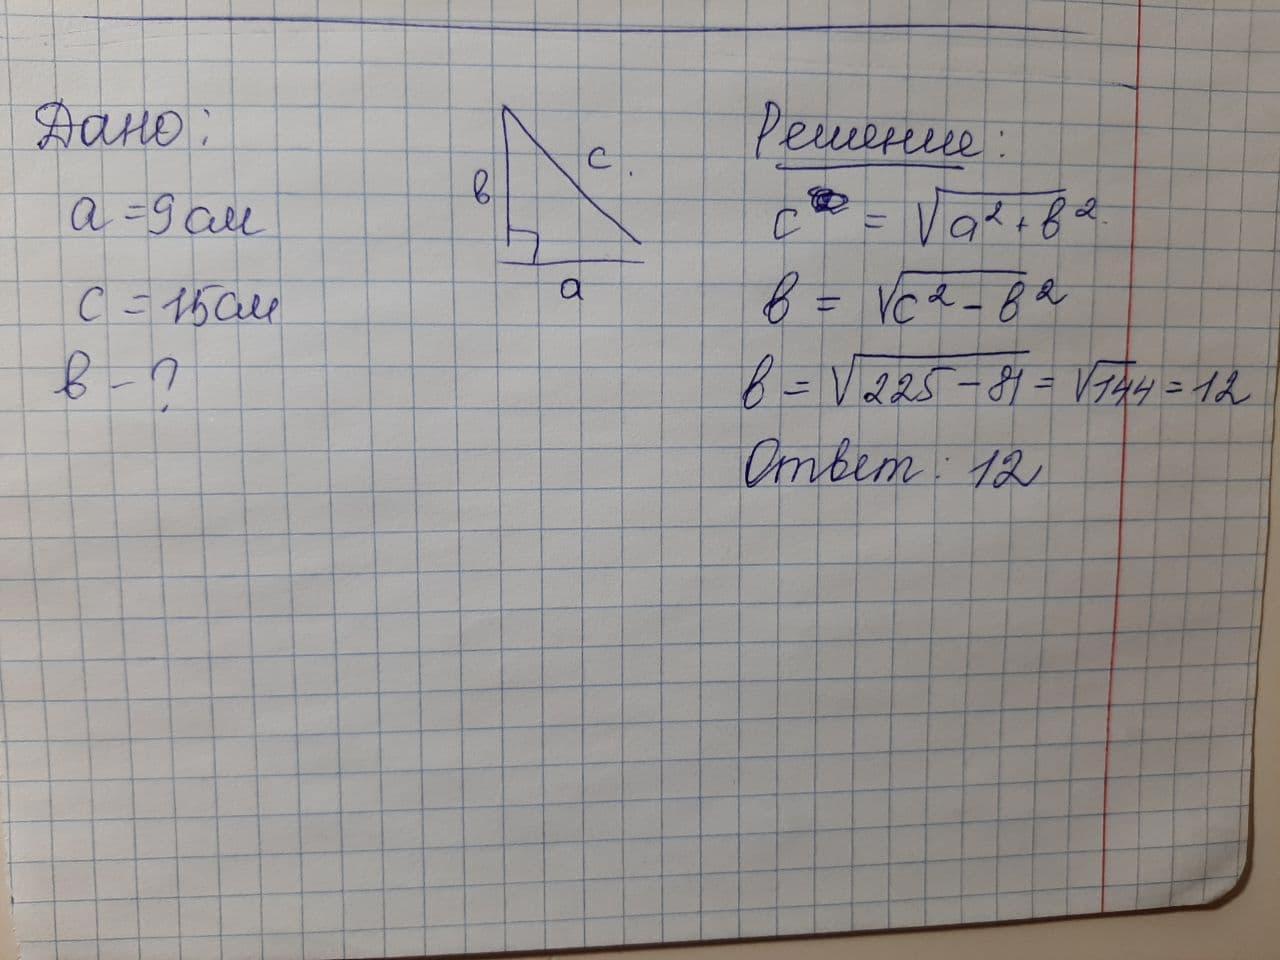 Дано:
a = 9 см
c = 15 см
в - ?
в
c
a
Решение:
c = √a² + в²
в = √c² - в²
в = √225 - 81 = √144 = 12
Ответ: 12